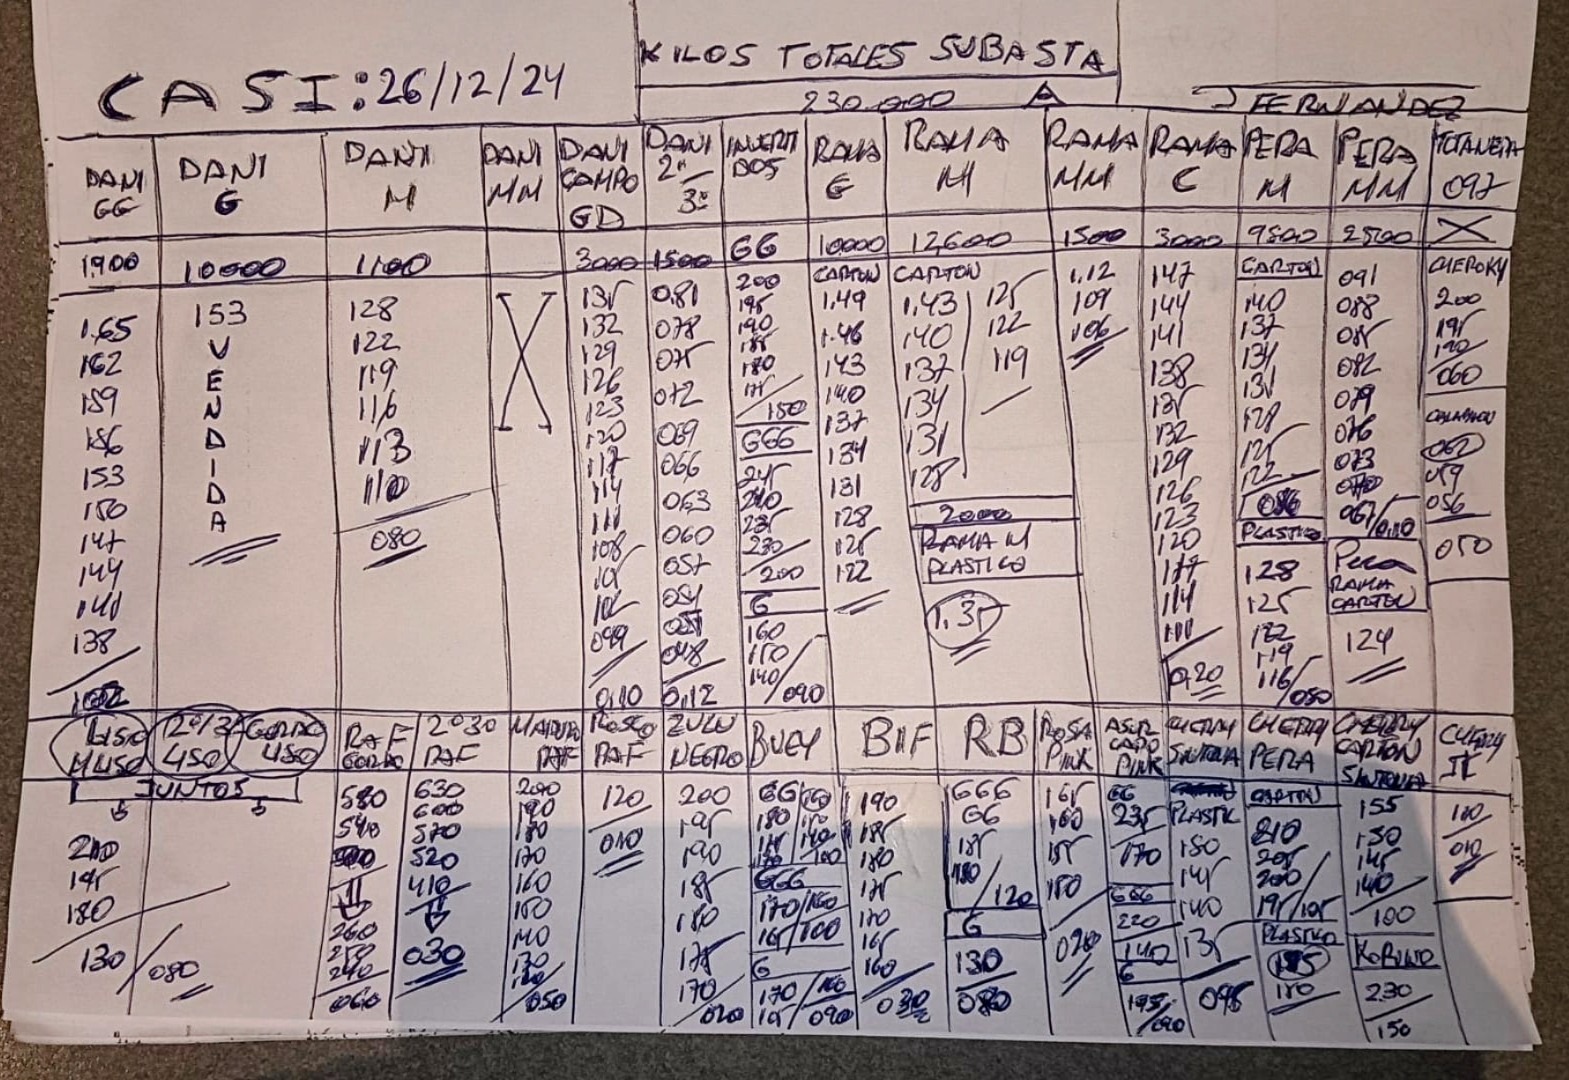 CASI: 26/12/24
KILOS TOTALES SUBASTA
230.000 A
J FERNANDEZ
DANI GG
DANI G
DANI M
DANI MM
DANI CAMPO GD
DANI 2ª/3ª
INVERTIDOS
RAMA G
RAMA M
RAMA MM
RAMA C
PERA M
PERA MM
TOTANERA 097
1900
10000
1100
3000
1500
GG
10000
12600
1500
3000
9500
2500
X
165
162
159
156
153
150
147
144
141
138
153
VENDIDA
128
122
119
116
113
110
080
135
132
129
126
123
120
117
114
111
108
105
102
099
0,10
0,81
078
075
072
069
066
063
060
057
054
051
048
0,12
200
195
190
185
180
175
150
GGG
245
240
235
230
200
G
160
150
140/090
CARTON
1.49
1.46
143
140
137
134
131
128
125
122
CARTON
1.43
140
137
134
131
128
125
122
119
2000
RAMA M
PLASTICO
1.35
1.12
109
106
147
144
141
138
135
132
129
126
123
120
117
114
111
0,20
CARTON
140
137
134
131
128
125
122
086
PLASTICO
128
125
122
119
116/050
091
088
085
082
079
076
073
070
067/0,10
PERA
RAMA
CARTON
124
CHEROKY
200
195
190
060
062
059
056
050
LISO M LISO
2º/3 LISO
GORDO LISO
JUNTOS
210
195
180
130/080
RAF GORDO
580
540
260
250
240
060
2º 30 RAF
630
600
570
520
410
030
MADURO RAF
200
190
180
170
160
150
140
130
120
050
ROSCO RAF
120
010
ZULU NEGRO
200
195
190
185
180
175
170
020
BUEY
GG
180
GGG
170/160
165/100
G
170/100
165/090
BIF
190
185
180
175
170
165
160
030
RB
GGG
GG
185
180/120
G
130
080
ROSA PINK
165
160
155
150
020
ASUR CAPO PINK
GG
235
170
GGG
220
140
G
195/090
CHERRY SINTONIA
PLASTIC
150
145
140
135
095
CHERRY PERA
CARTON
210
205
200
195/105
PLASTICO
110
CHERRY CARTON SINTONIA
155
150
145
140
100
KORINTO
230
150
CHERRY II
110
010